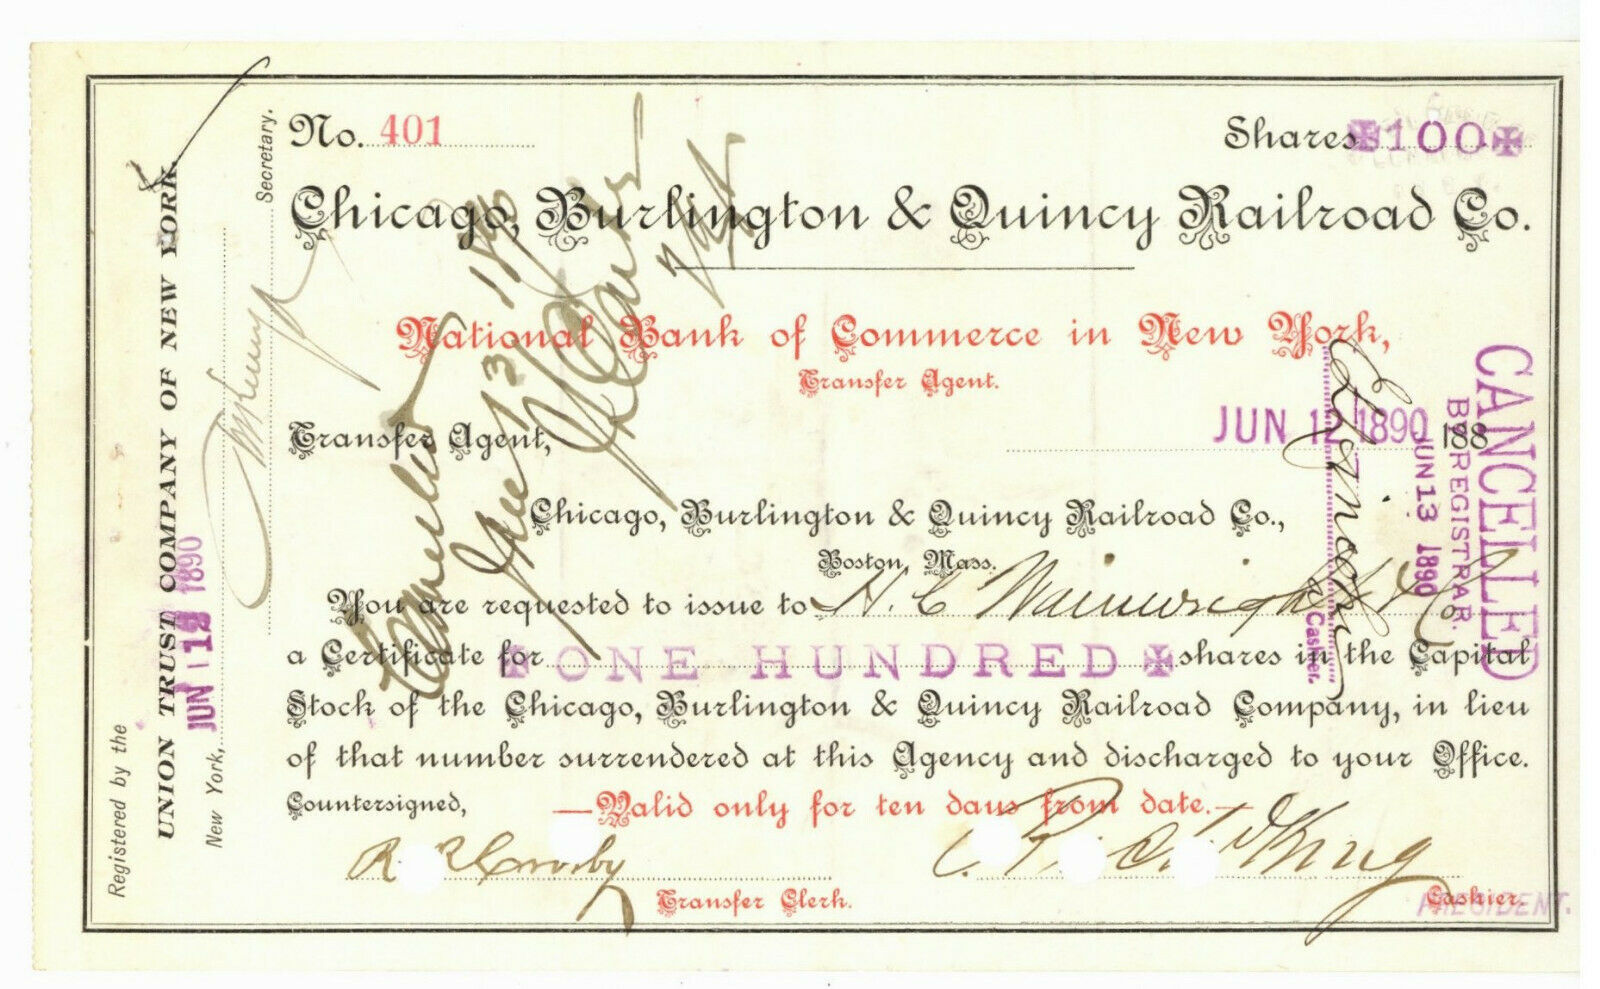 No. 401
Shares 100
Chicago, Burlington & Quincy Railroad Co.
National Bank of Commerce in New York,
Transfer Agent.
Transfer Agent,
JUN 12 1890 188
Chicago, Burlington & Quincy Railroad Co.,
Boston, Mass.
You are requested to issue to H. C. Wainwright & Co
a Certificate for ONE HUNDRED shares in the Capital
Stock of the Chicago, Burlington & Quincy Railroad Company, in lieu
of that number surrendered at this Agency and discharged to your Office.
Countersigned,
—Valid only for ten days from date.—
R. R. Crosby
King
Transfer Clerk.
Cashier.
PRESIDENT.
Registered by the
UNION TRUST COMPANY OF NEW YORK.
New York,
JUN 12 1890
Secretary.
Cancelled
June 13 1890
CANCELLED
BY REGISTRAR.
JUN 13 1890
Cashier.